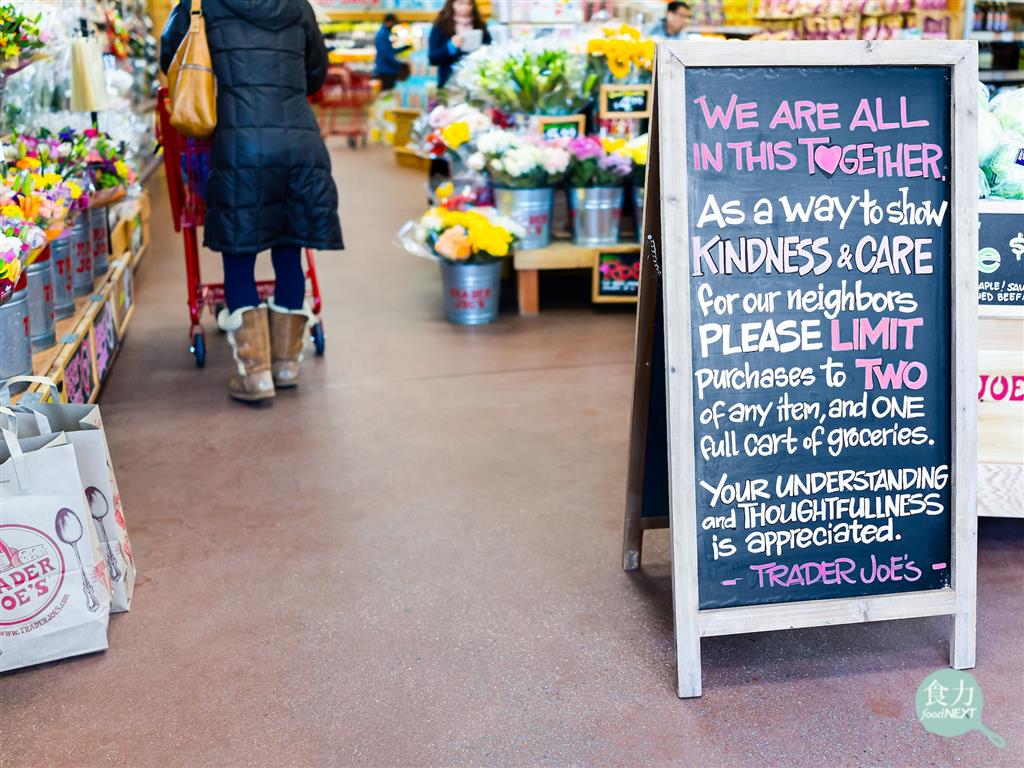 WE ARE ALL
IN THIS TOGETHER.
AS A WAY to SHOW
KINDNESS & CARE
for our neighbors
PLEASE LIMIT
purchases to TWO
of any item, and ONE
full cart of groceries.
YOUR UNDERSTANDING
and THOUGHTFULLNESS
is appreciated.
- TRADER JOE'S -
TRADER
JOE'S
TRADER
JOE'S
www.TRADERJOE'S.com
JOE
食力
foodNEXT